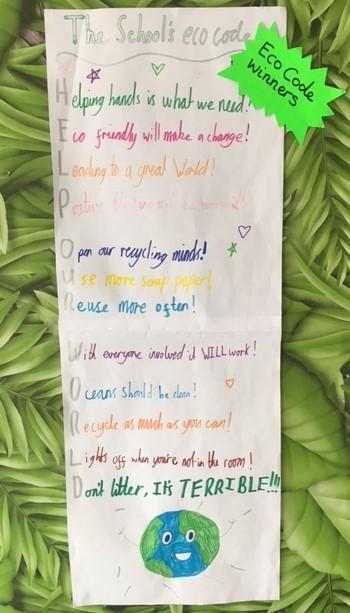 The School's eco code
Eco Code
winners
Helping hands is what we need!
Eco friendly will make a change!
Leading to a great World!
Positive thinking will be
Open our recycling minds!
Use more scrap paper!
Reuse more often!
With everyone involved it WILL work!
Oceans should be clean!
Recycle as much as you can!
Lights off when you're not in the room!
Don't litter, It's TERRIBLE!!!